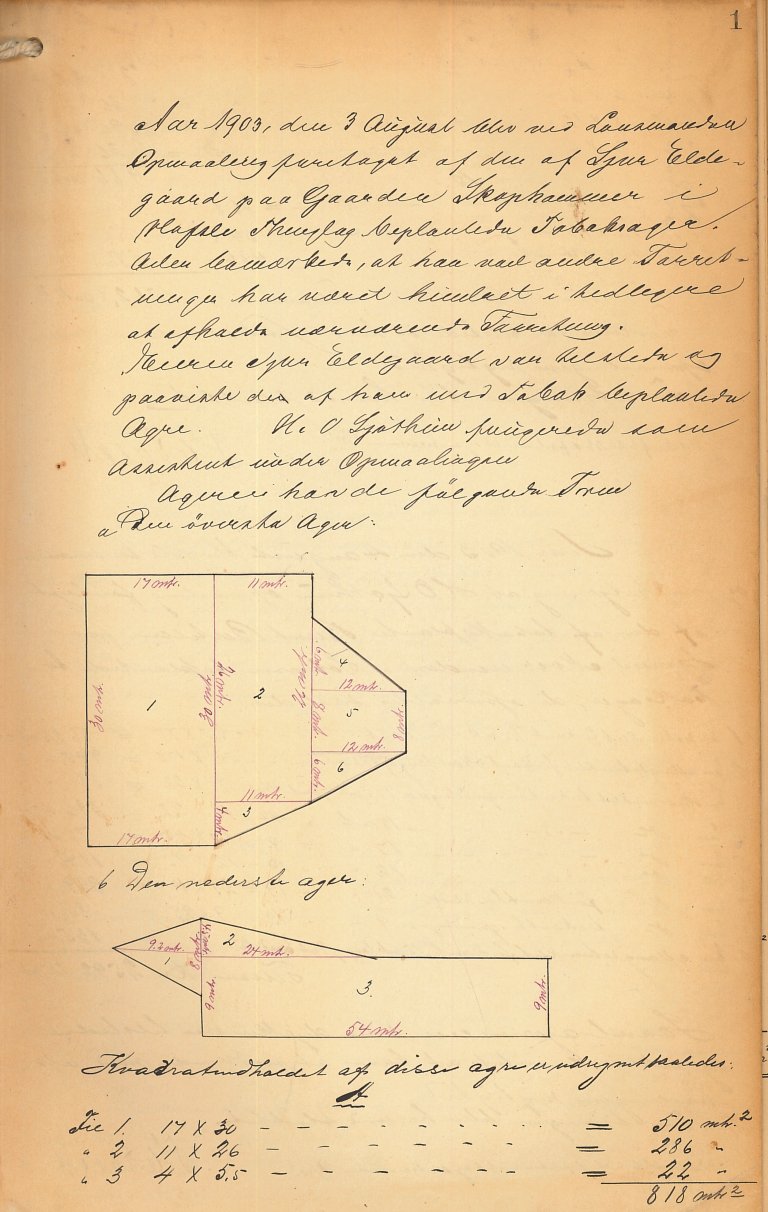 1
Aar 1903, den 3 August blev ved Lensmanden
Opmaaling foretaget af den af Sjur Elde-
gaard paa Gaarden Skophammer i
Hafslo Thinglag beplantede Tobaksager.
Det bemærkedes, at han ved andre Forret-
ninger har været hindret i tidligere
at afholde nærværende Forretning.
Eieren Sjur Eldegaard var tilstede og
paaviste de af ham med Tobak beplantede
Agre. H. O Sjøthun fungerede som
Assistent under Opmaalingen
Ageren havde følgende Form
a Den øverste Ager:
17 mtr. 11 mtr.
30 mtr. 1 30 mtr. 26 mtr. 2 22 mtr. 6 mtr. 4
12 mtr.
8 mtr. 5 8 mtr.
12 mtr.
6 mtr. 6
11 mtr.
4 mtr. 3
17 mtr.
b Den nederste ager:
9.2 mtr. 1 8 mtr. 4.5 mtr. 2 24 mtr.
9 mtr. 3. 9 mtr.
54 mtr.
Kvadratindholdet af disse agre er udregnet saaledes:
A
Fig 1. 17 X 30 - - - - - - = 510 mtr.2
" 2 11 X 26 - - - - - - = 286 "
" 3 4 X 5.5 - - - - - - = 22 "
818 mtr2